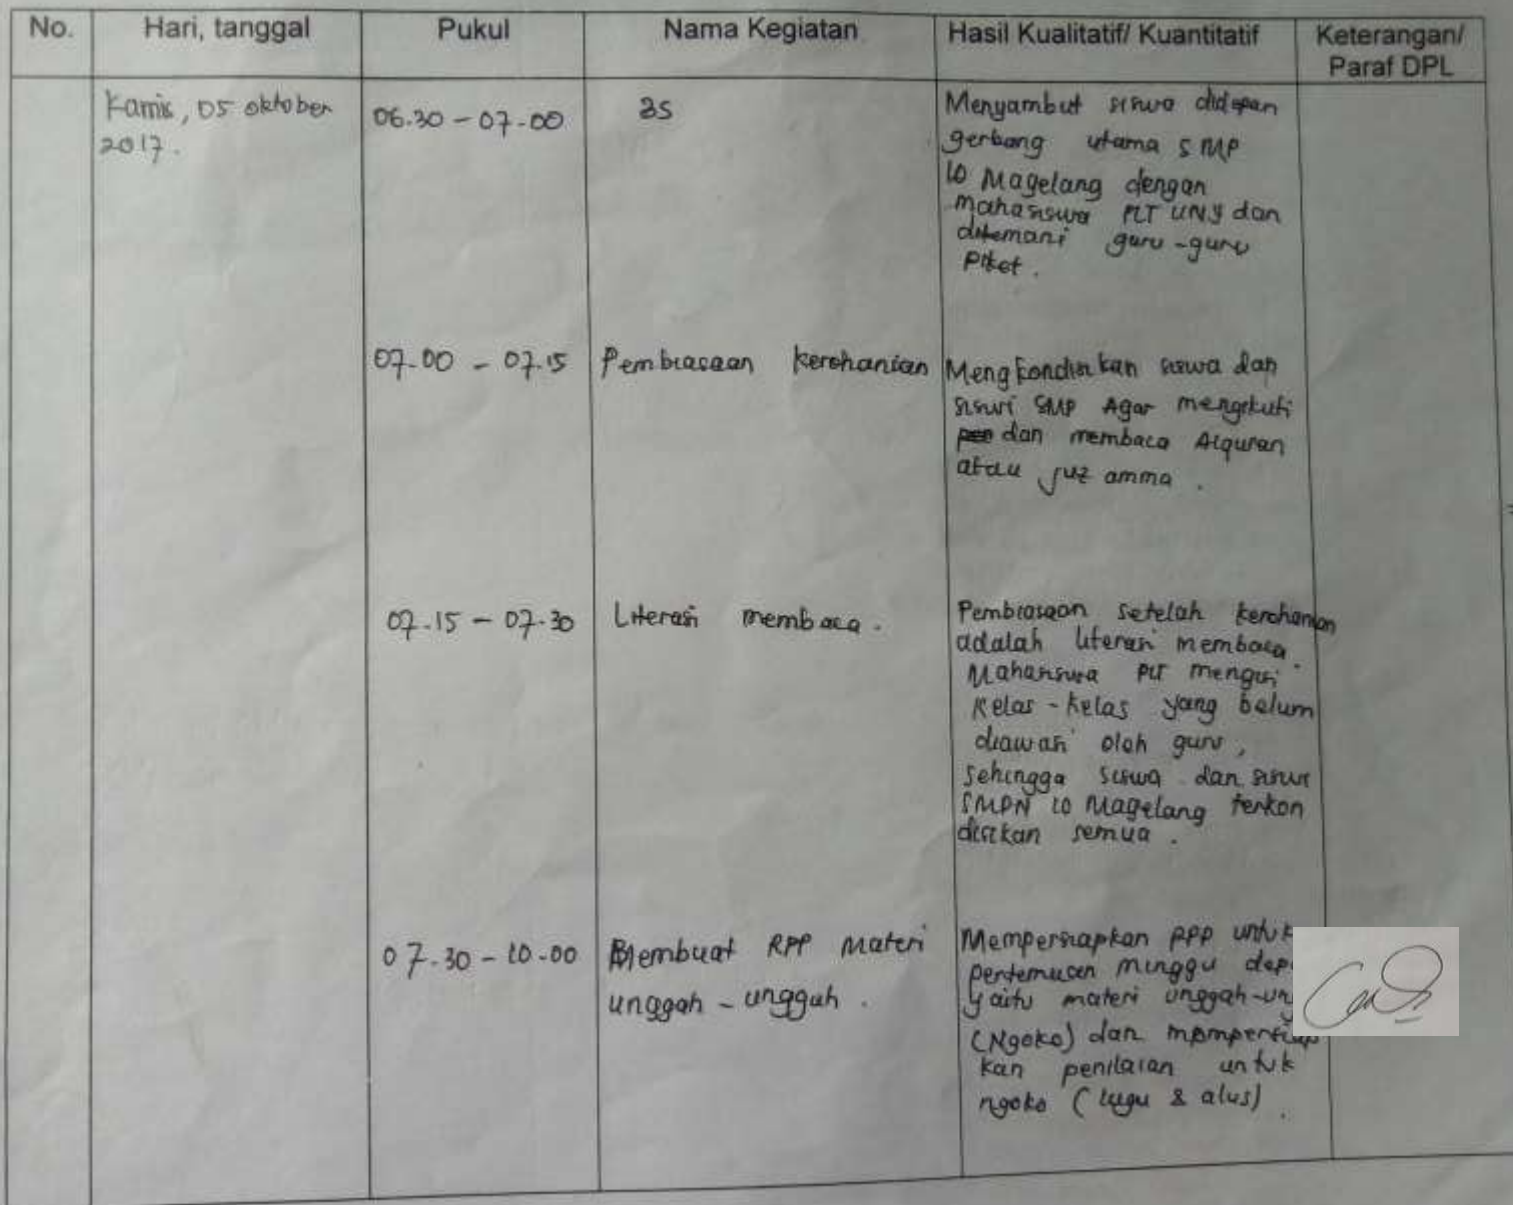 No. Hari, tanggal Pukul Nama Kegiatan Hasil Kualitatif/ Kuantitatif Keterangan/
Paraf DPL
Kamis, 05 oktober
2017.
06.30 - 07.00
3S
Menyambut siswa didepan
gerbang utama SMP
10 Magelang dengan
mahasiswa PLT UNY dan
ditemani guru-guru
Piket.
07.00 - 07.15
Pembiasaan kerohanian
Mengkondisikan siswa dan
siswi SMP Agar mengikuti
dan membaca Alquran
atau juz amma.
07.15 - 07.30
Literasi membaca.
Pembiasaan setelah kerohanian
adalah literasi membaca.
Mahasiswa PLT mengisi
kelas-kelas yang belum
diawasi oleh guru,
sehingga siswa dan siswi
SMPN 10 Magelang terkon
disikan semua.
07.30 - 10.00
Membuat RPP Materi
unggah-ungguh.
Mempersiapkan RPP untuk
pertemuan minggu dep
yaitu materi unggah-un
(Ngoko) dan mempersiap
kan penilaian untuk
ngoko (lugu & alus).